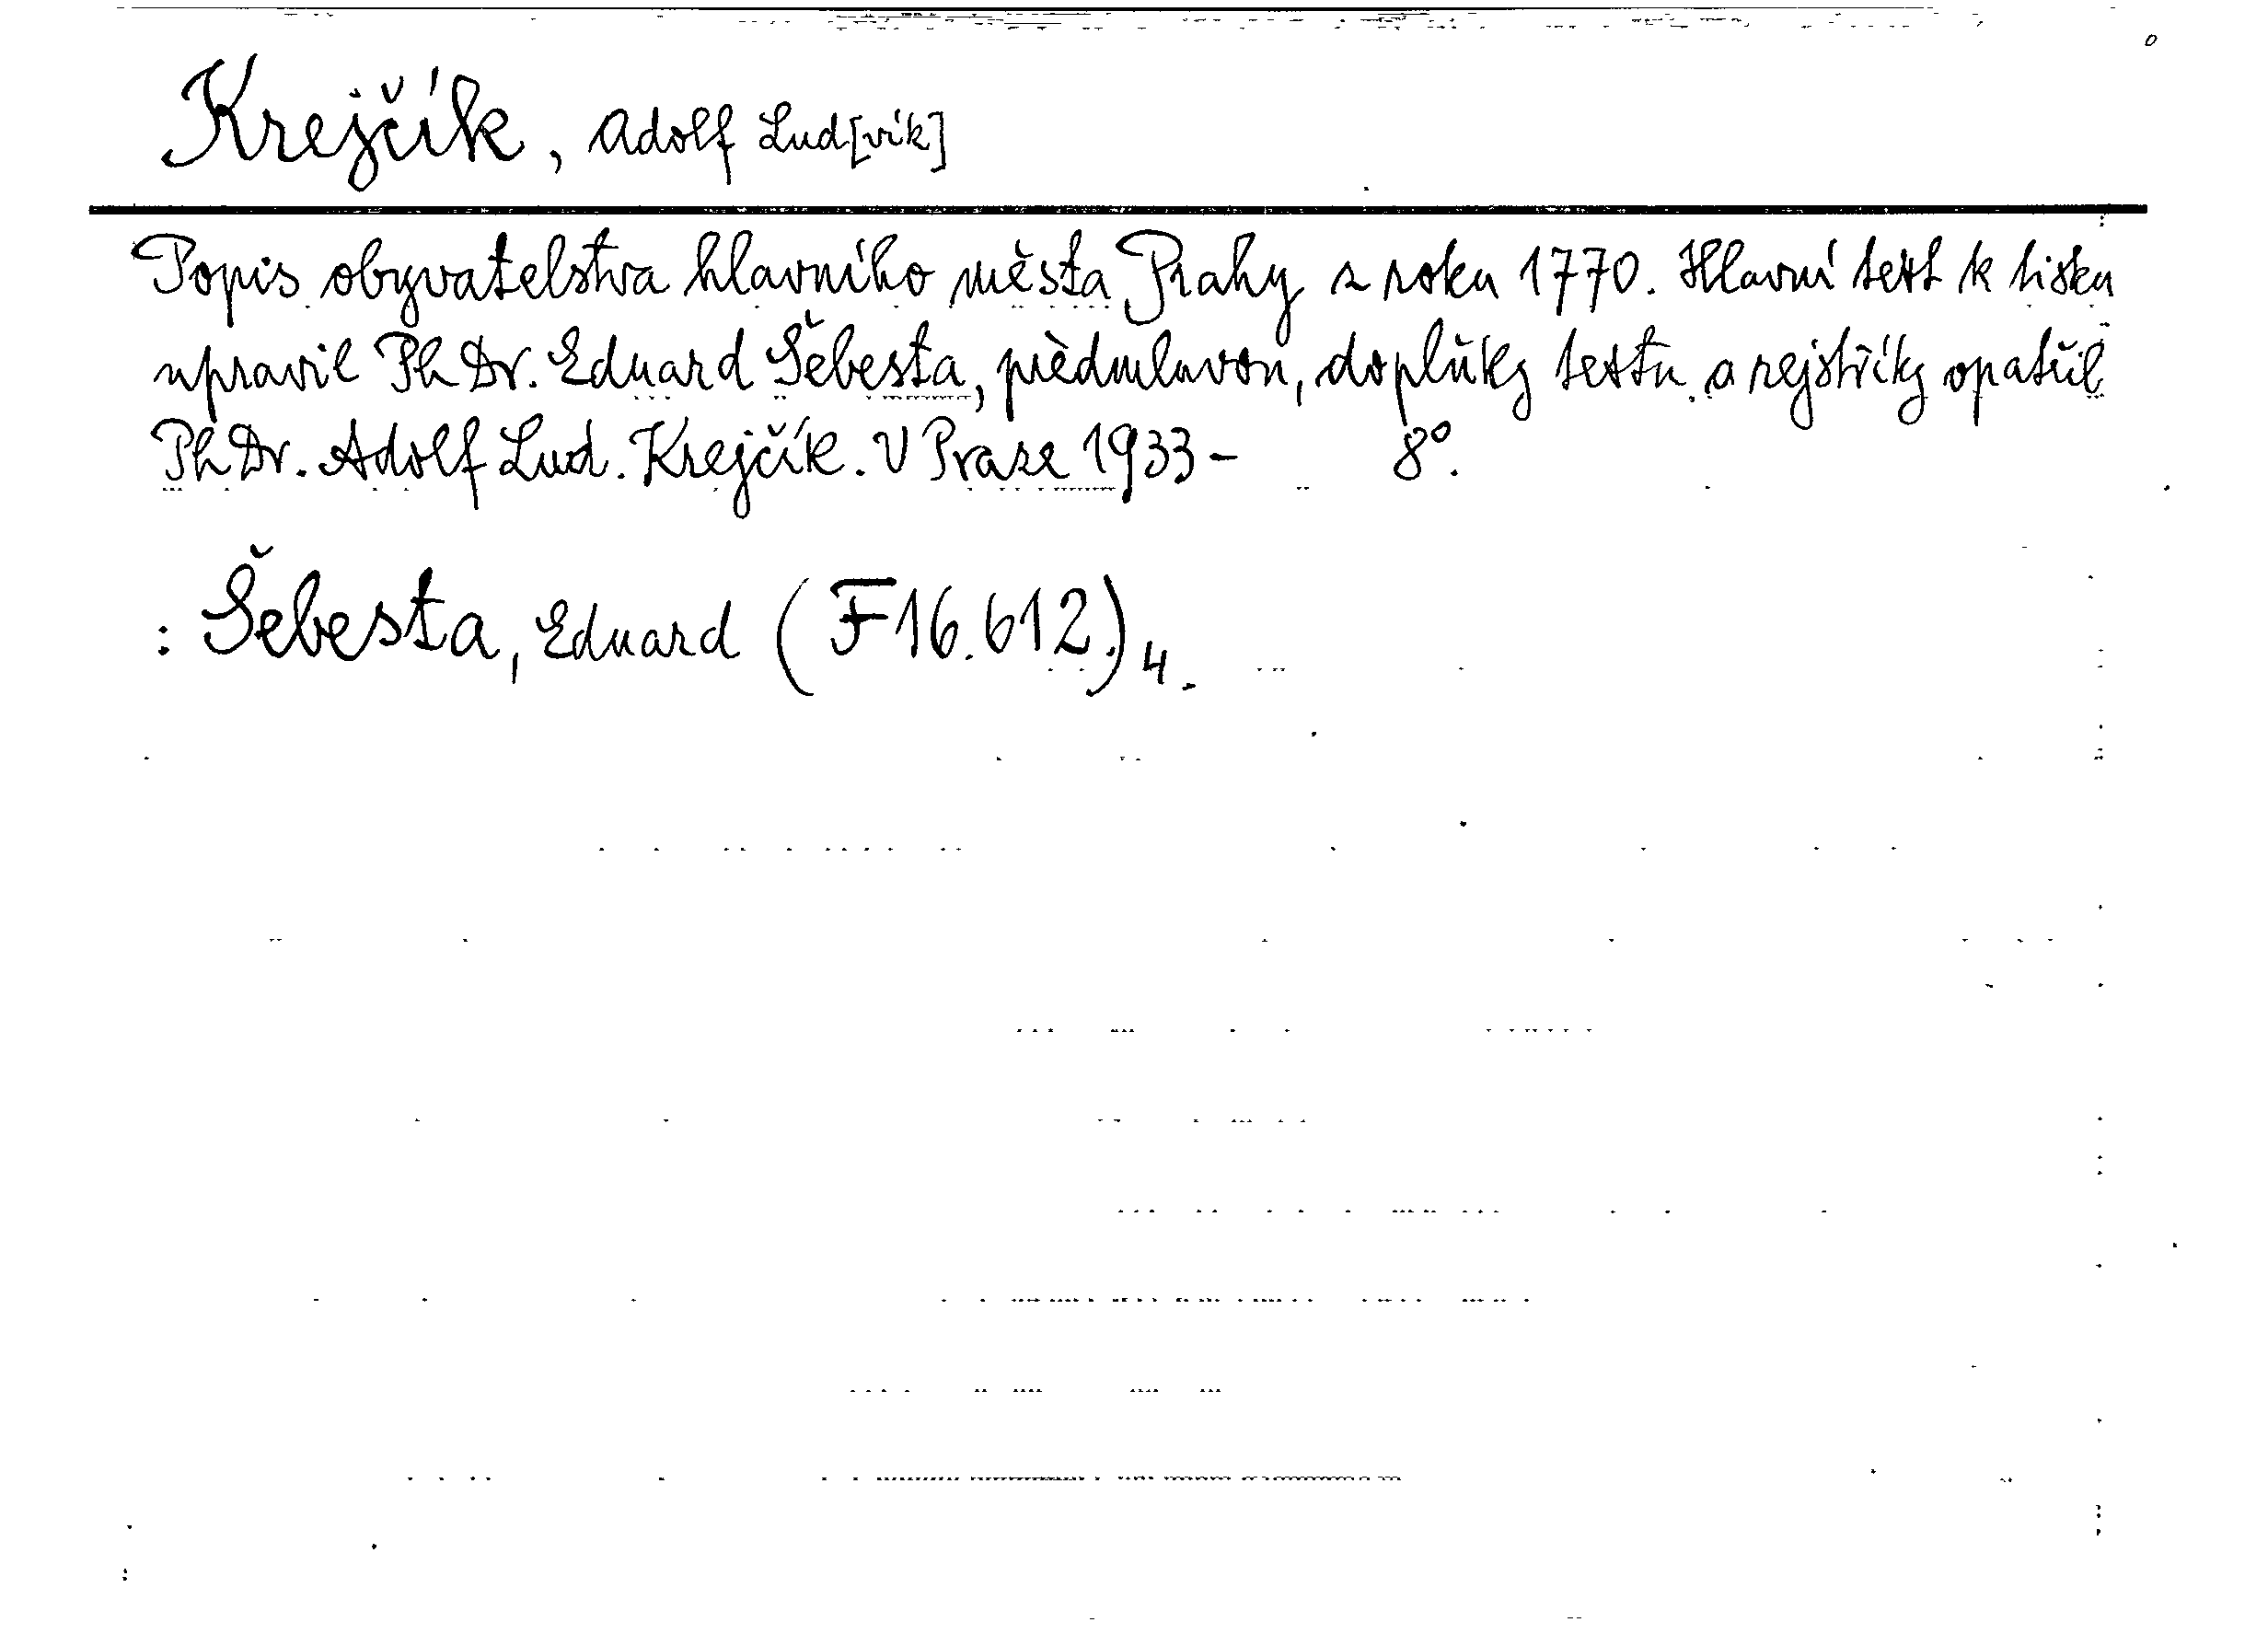 Krejčík, Adolf Lud[vík]
Popis obyvatelstva hlavního města Prahy z roku 1770. Hlavní text k tisku
upravil PhDr. Eduard Šebesta, předmluvou, doplňky textu a rejstříky opatřil
PhDr. Adolf Lud. Krejčík. V Praze 1933- 8°.
: Šebesta, Eduard (F16.612.)4.